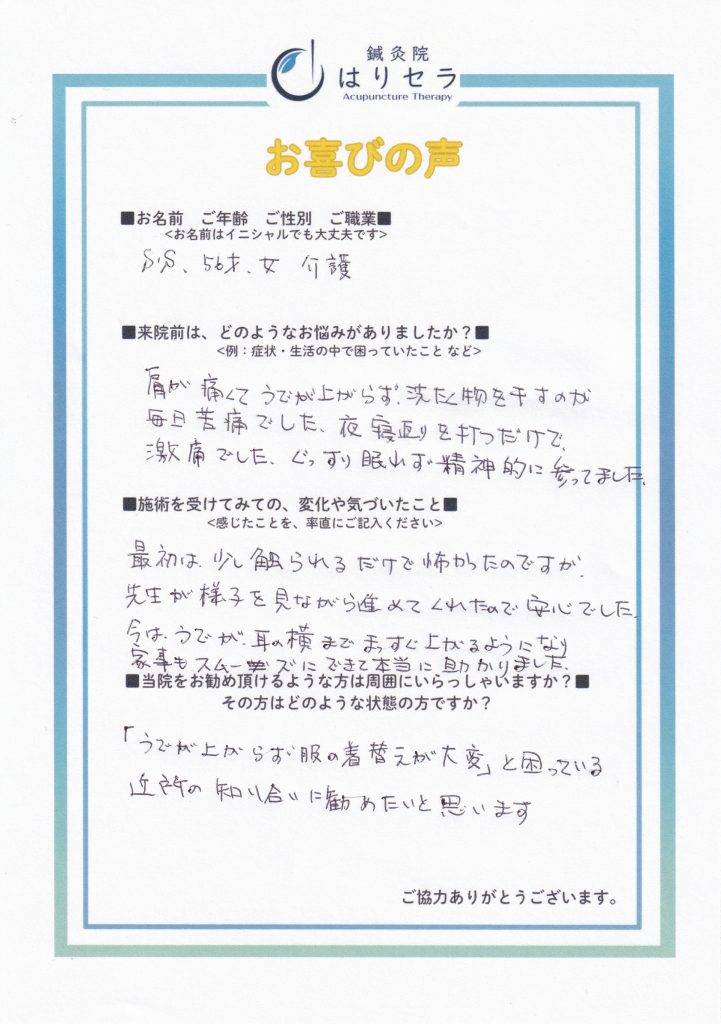 鍼灸院
はりセラ
Acupuncture Therapy
お喜びの声
■お名前 ご年齢 ご性別 ご職業■
<お名前はイニシャルでも大丈夫です>
S.S、56才、女 介護
■来院前は、どのようなお悩みがありましたか？■
<例：症状・生活の中で困っていたこと など>
肩が痛くてうでが上がらず、洗たく物を干すのが
毎日苦痛でした、夜寝返りを打つだけで、
激痛でした、ぐっすり眠れず精神的に参ってました。
■施術を受けてみての、変化や気づいたこと■
<感じたことを、率直にご記入ください>
最初は、少し触られるだけで怖かったのですが、
先生が様子を見ながら進めてくれたので安心でした。
今は、うでが、耳の横まで まっすぐ上がるようになり
家事もスムーズにできて本当に助かりました。
■当院をお勧め頂けるような方は周囲にいらっしゃいますか？■
その方はどのような状態の方ですか？
「うでが上がらず服の着替えが大変」と困っている
近所の知り合いに勧めたいと思います
ご協力ありがとうございます。